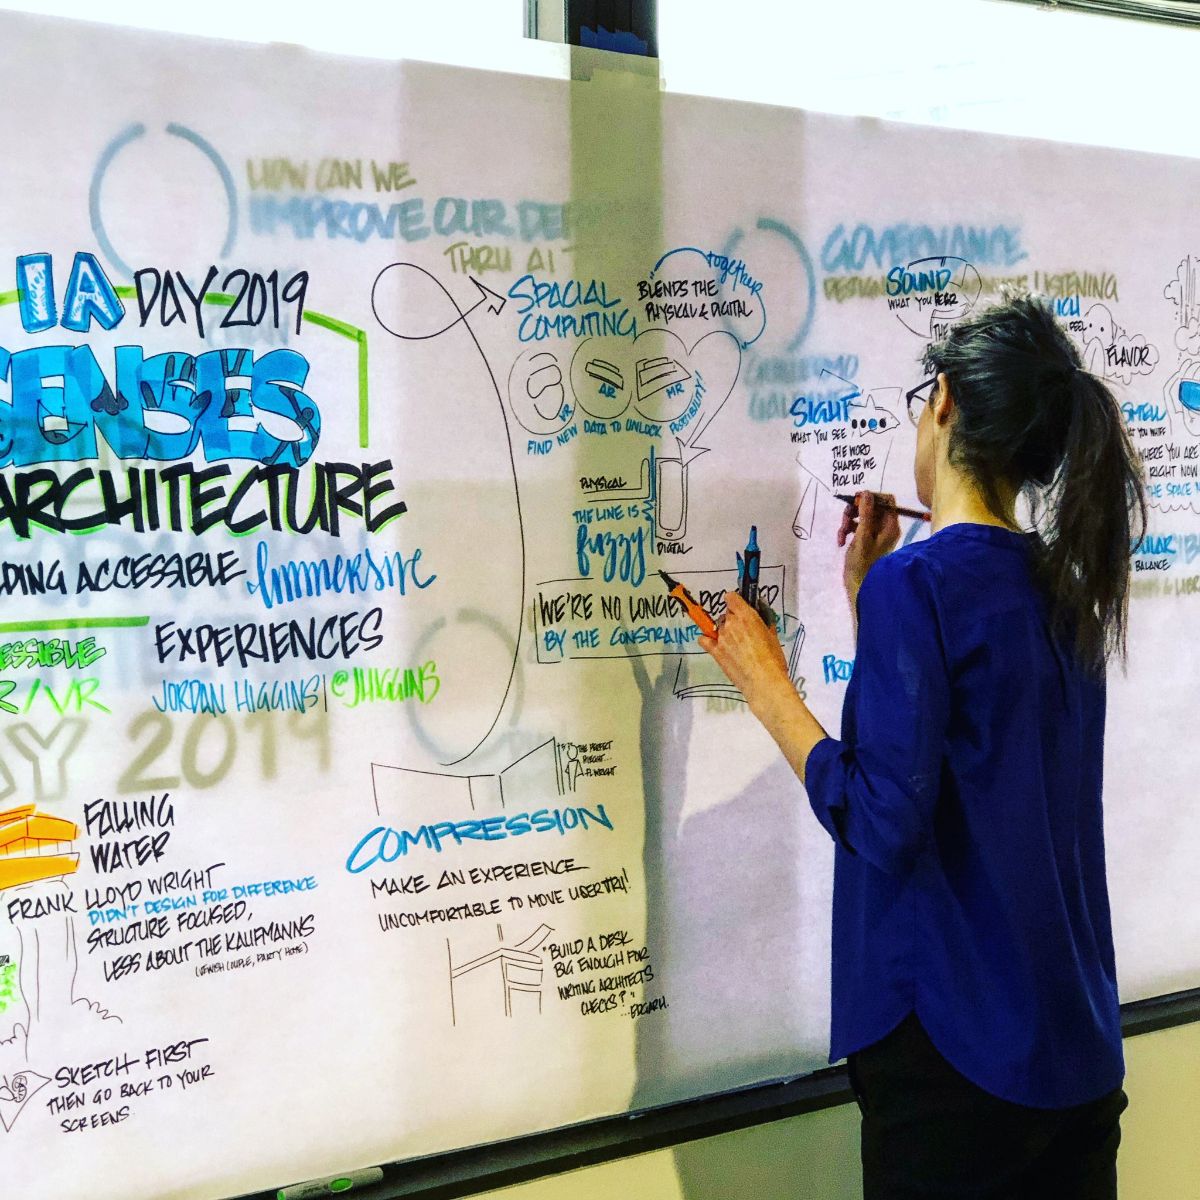 HOW CAN WE
IMPROVE OUR
THRU AI
IA DAY 2019
SENSES
ARCHITECTURE
ACCESSIBLE Immersive
EXPERIENCES
JORDAN HIGGINS | @JHIGGINS
/VR
2019
FALLING
WATER
FRANK LLOYD WRIGHT
DIDN'T DESIGN FOR DIFFERENCE
STRUCTURE FOCUSED,
LESS ABOUT THE KAUFMANNS
(JEWISH COUPLE, PARTY HOME)
SKETCH FIRST
THEN GO BACK TO YOUR
SCREENS
SPACIAL
COMPUTING
BLENDS THE
PHYSICAL & DIGITAL
together
VR
AR
MR
FIND NEW DATA TO UNLOCK POSSIBILITY!
PHYSICAL
THE LINE IS
fuzzy!
DIGITAL
WE'RE NO LONGER
BY THE CONSTRAINTS
THE PERFECT
HEIGHT...
FL WRIGHT
COMPRESSION
MAKE AN EXPERIENCE
UNCOMFORTABLE TO MOVE USER THRU!
"BUILD A DESK
BIG ENOUGH FOR
WRITING ARCHITECTS
CHECKS?"
...EDGAR H.
GOVERNANCE
LISTENING
SOUND
WHAT YOU HEAR
GUILLERMO
SIGHT
WHAT YOU SEE
THE WORD
SHAPES WE
PICK UP.
FLAVOR
SMELL
WHAT YOU WHIFF
WHERE YOU ARE
RIGHT NOW
THE SPACE
BALANCE